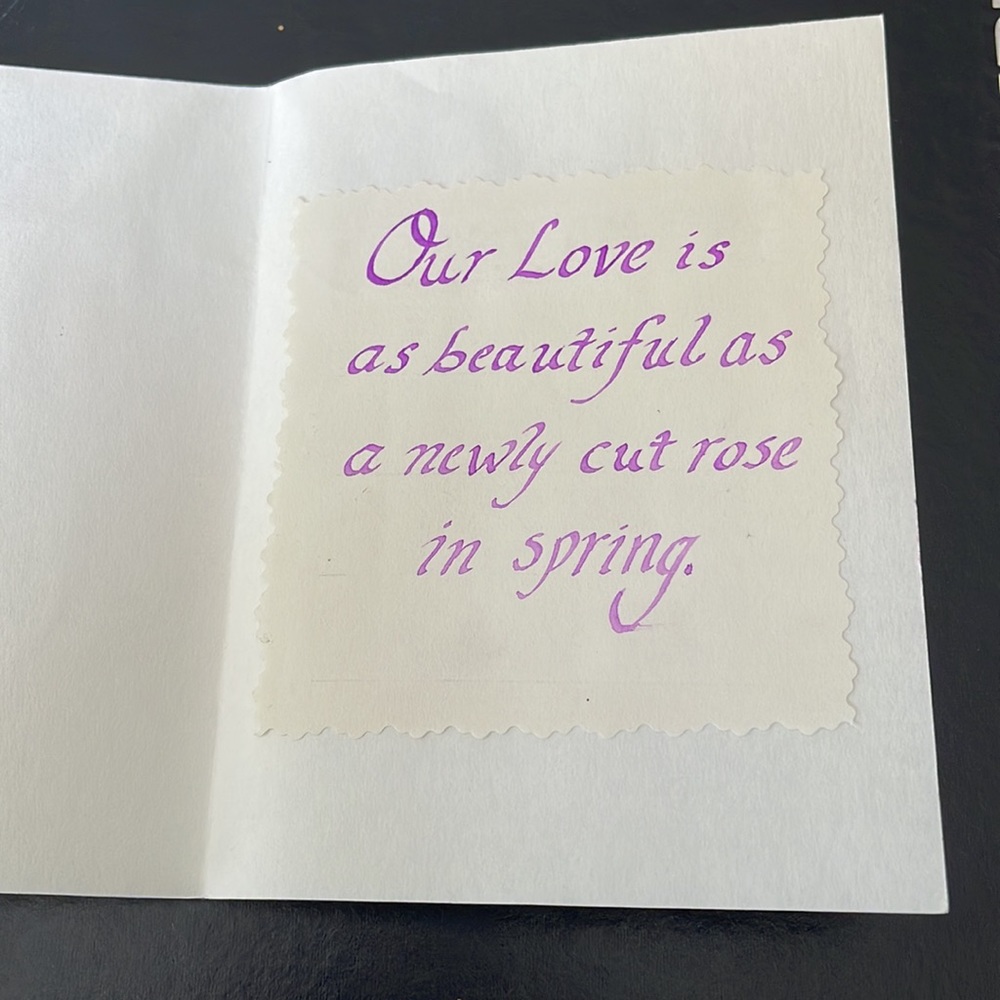 Our Love is
as beautiful as
a newly cut rose
in spring.